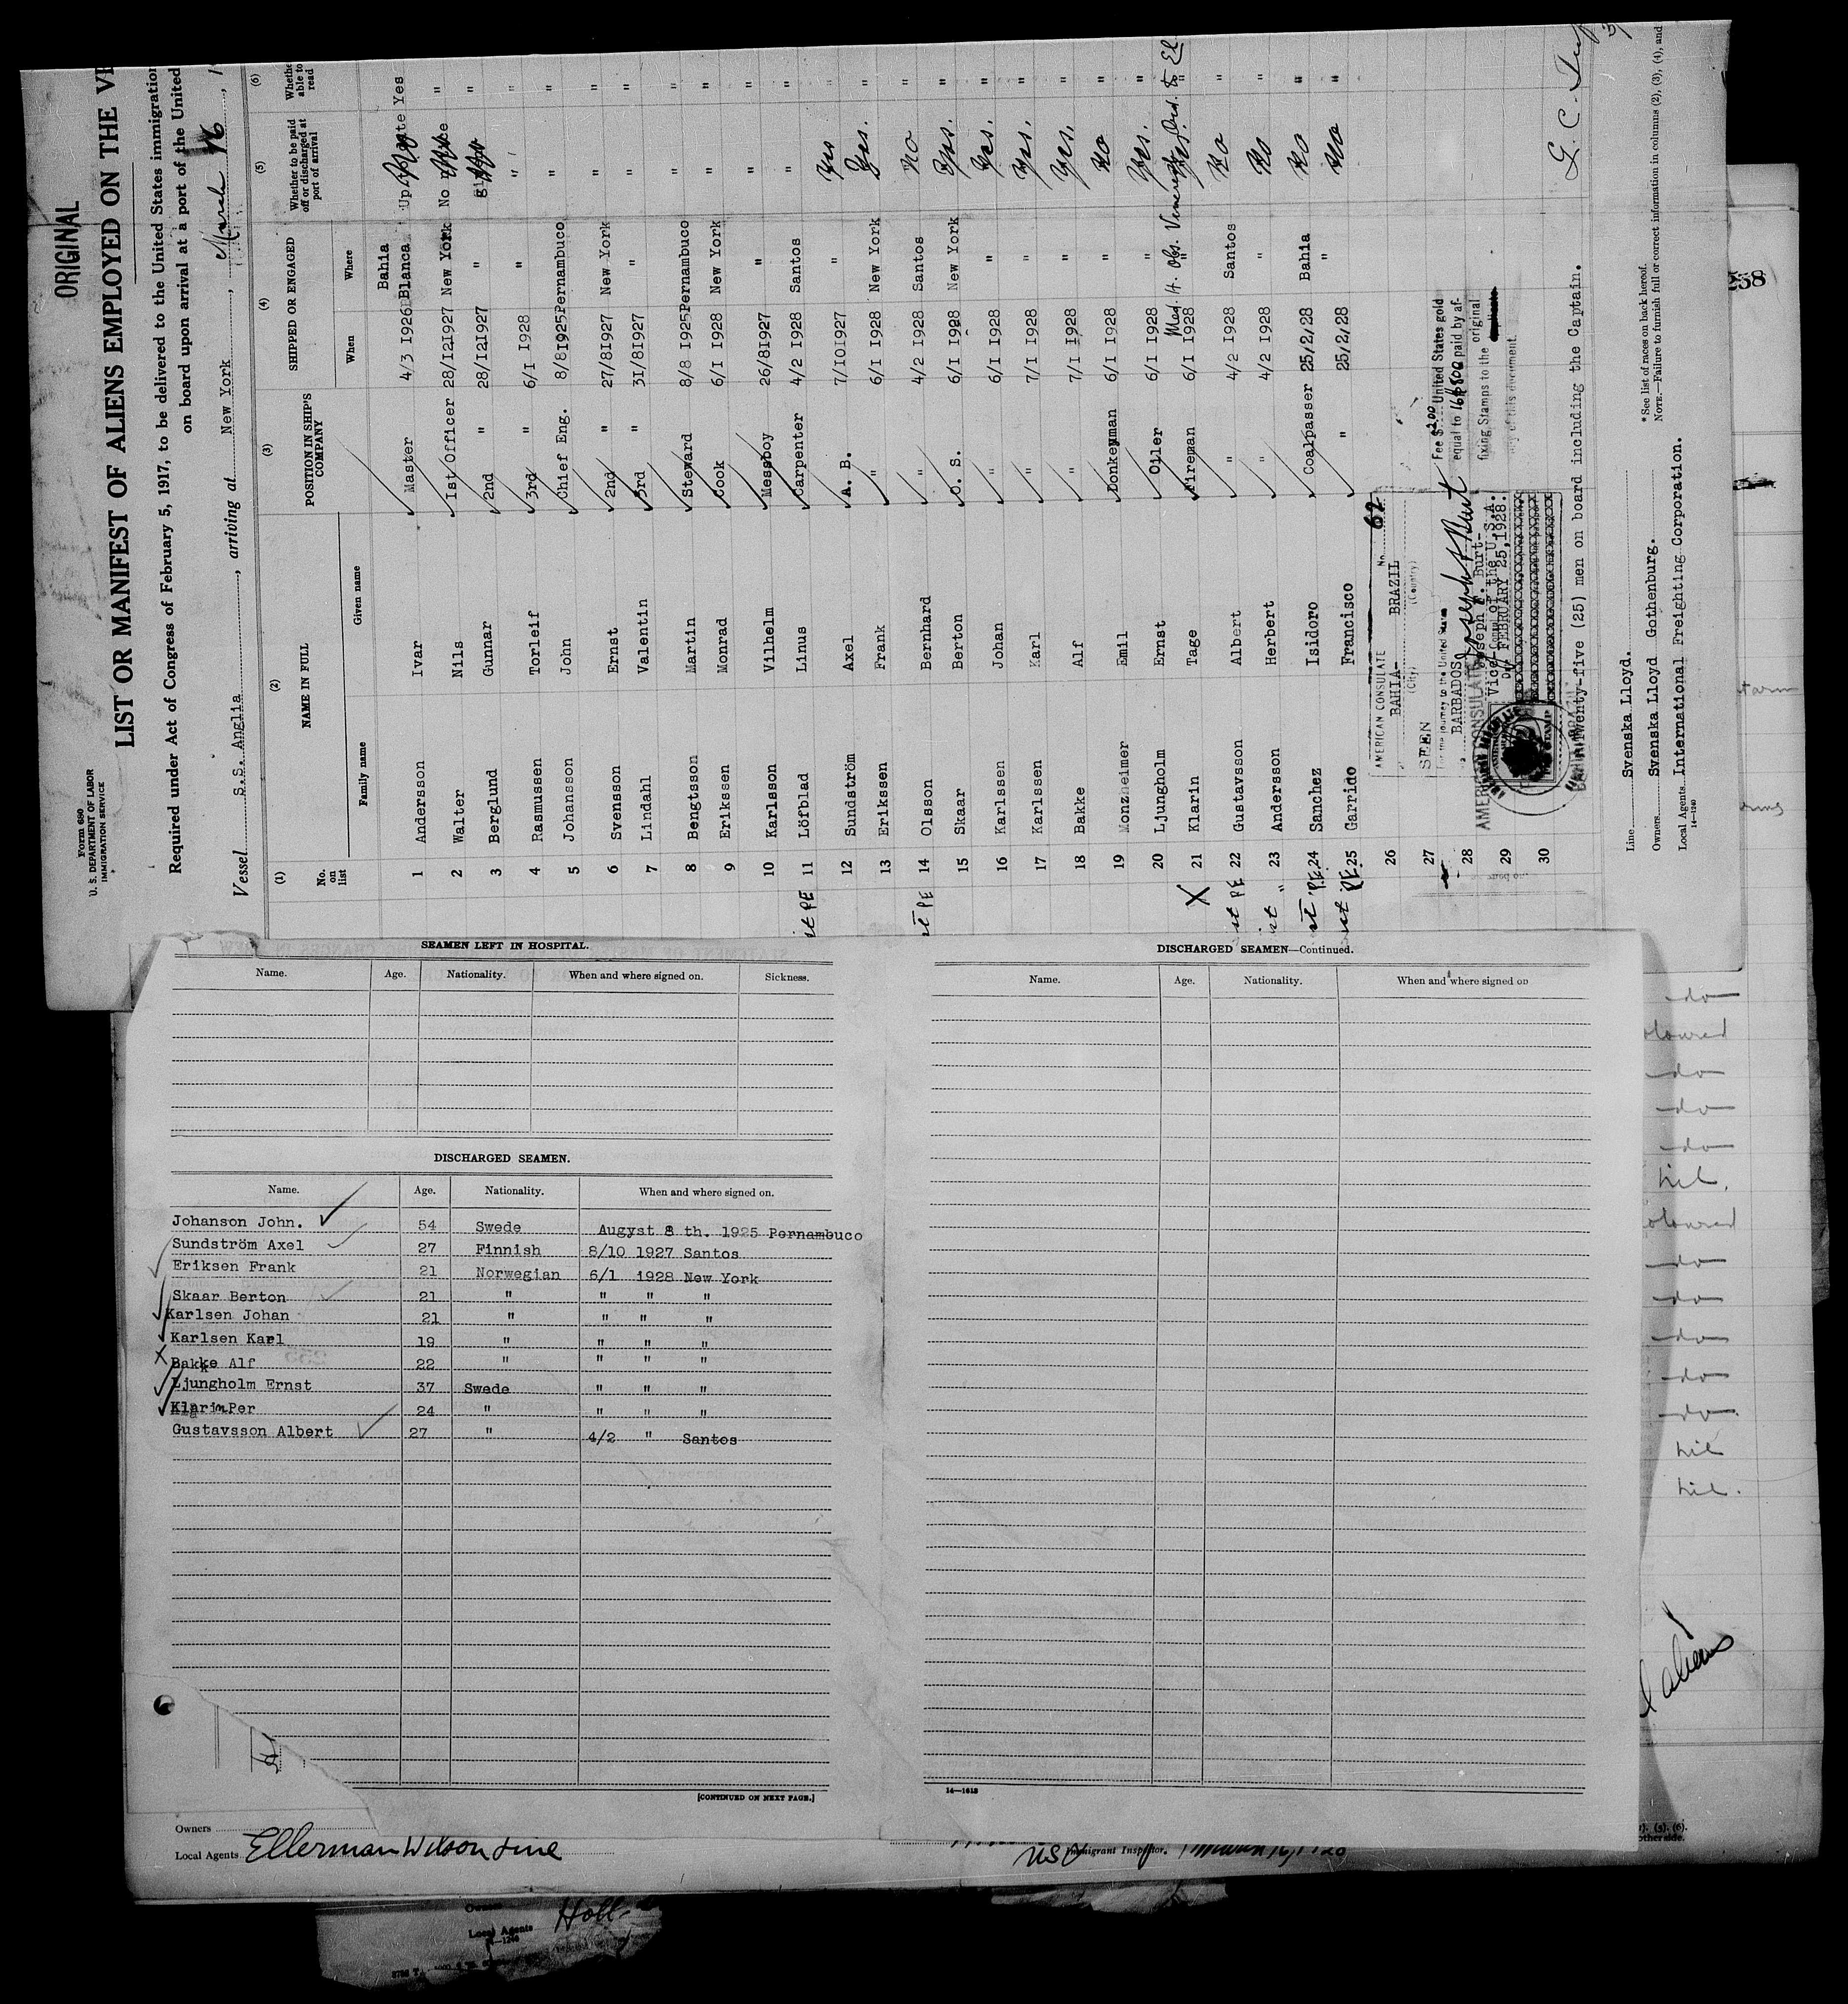 ORIGINAL
Form 680
U. S. DEPARTMENT OF LABOR
IMMIGRATION SERVICE
LIST OR MANIFEST OF ALIENS EMPLOYED ON THE
Required under Act of Congress of February 5, 1917, to be delivered to the United States immigration
on board upon arrival at a port of the United
Vessel S.S. Anglia, arriving at New York, March 16
(1) (2) (3) (4) (5) (6)
No. on list NAME IN FULL POSITION IN SHIP'S COMPANY SHIPPED OR ENGAGED Whether to be paid off or discharged at port of arrival Whether able to read
Family name Given name When Where
1 Andersson Ivar Master 4/3 1926 Bahia Blanca Yes
2 Walter Nils Ist Officer 28/121927 New York No "
3 Berglund Gunnar 2nd " 28/121927 " "
4 Rasmussen Torleif 3rd " 6/1 1928 " " "
5 Johansson John Chief Eng. 8/81925 Pernambuco " "
6 Svensson Ernst 2nd " 27/81927 New York " "
7 Lindahl Valentin 3rd " 31/81927 " " "
8 Bengtsson Martin Steward 8/8 1925 Pernambuco " "
9 Erikssen Monrad Cook 6/1 1928 New York " "
10 Karlsson Vilhelm Messboy 26/81927 " " "
it PE 11 Löfblad Linus Carpenter 4/2 1928 Santos " "
12 Sundström Axel A. B. 7/101927 " Yes "
13 Erikssen Frank " 6/1 1928 New York Yes. "
it PE 14 Olsson Bernhard " 4/2 1928 Santos No "
15 Skaar Berton O. S. 6/1 1928 New York Yes. "
16 Karlssen Johan " 6/1 1928 " Yes. "
17 Karlssen Karl " 7/1 1928 " Yes. "
18 Bakke Alf " 7/1 1928 " Yes. "
19 Monzheimer Emil Donkeyman 6/1 1928 " No "
20 Ljungholm Ernst Oiler 6/1 1928 " Yes. "
X 21 Klarin Tage Fireman 6/1 1928 " Yes. "
it PE 22 Gustavsson Albert " 4/2 1928 Santos No "
it " 23 Andersson Herbert " 4/2 1928 " No "
it PE 24 Sanchez Isidoro Coalpasser 25/2/28 Bahia No "
it PE 25 Garrido Francisco " 25/2/28 " No "
26
27
28
29
30
AMERICAN CONSULATE No. 62
BAHIA BRAZIL
(City) (Country)
SEEN
For the journey to the United States
BARBADOS
Joseph F. Burt
Joseph F. Burt-
Vice-Consul of the U.S.A.
Date FEBRUARY 25, 1928.
AMERICAN CONSULATE
Fee $2.00 United States gold
equal to paid by af-
fixing Stamps to the original
copy of this document.
Twenty-five (25) men on board including the Captain.
Line Svenska Lloyd.
Owners Svenska Lloyd Gothenburg.
Local Agents International Freighting Corporation.
14—1240
*See list of races on back hereof.
NOTE.—Failure to furnish full or correct information in columns (2), (3), (4), and
SEAMEN LEFT IN HOSPITAL.
Name. Age. Nationality. When and where signed on. Sickness.
DISCHARGED SEAMEN.
Name. Age. Nationality. When and where signed on.
Johanson John. 54 Swede Augyst 8 th. 1925 Pernambuco
Sundström Axel 27 Finnish 8/10 1927 Santos
Eriksen Frank 21 Norwegian 6/1 1928 New York
Skaar Berton 21 " " " "
Karlsen Johan 21 " " " "
Karlsen Karl 19 " " " "
X Bakke Alf 22 " " " "
Ljungholm Ernst 37 Swede " " "
Klarin Per 24 " " " "
Gustavsson Albert 27 " 4/2 " Santos
[CONTINUED ON NEXT PAGE.]
DISCHARGED SEAMEN—Continued.
Name. Age. Nationality. When and where signed on
14—1613
258
do
do
do
do
nil.
do
do
do
do
do
nil
nil.
Owners
Local Agents Ellerman Wilson Line
Immigrant Inspector.
Owners
Local Agents Holl-
14—1240